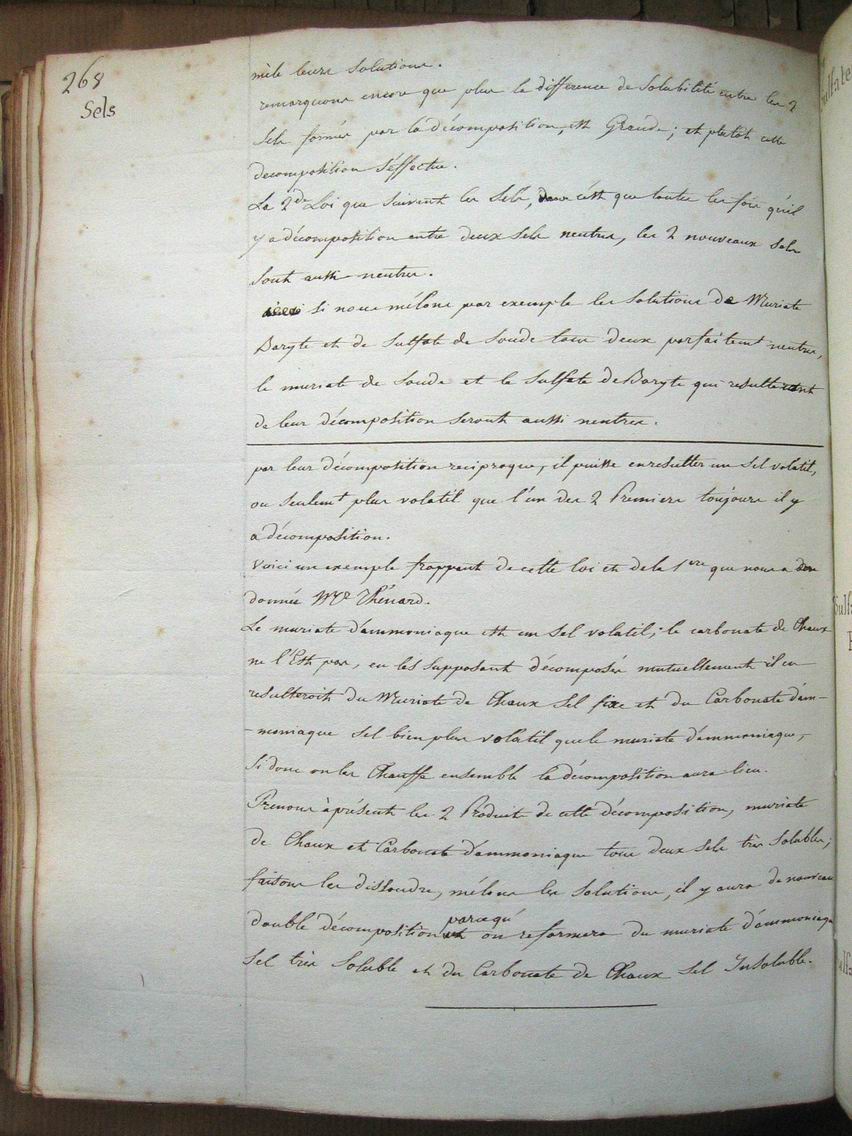 268
Sels
mêle leurs solutions.
remarquons encore que plus la différence de solubilité entre les 2
sels formés par la décomposition, est Grande; et plutot cette
decomposition s'éffectue.
La 2de Loi que suivent les sels, c'est que toutes les fois qu'il
y a décomposition entre deux sels neutres, les 2 nouveaux sels
sont aussi neutres.
si nous mêlons par exemple les solutions de Muriate
Baryte et de Sulfate de Soude tous deux parfaitemt neutres,
le muriate de Soude et le Sulfate de Baryte qui resulteront
de leur décomposition seront aussi neutres.
par leur décomposition reciproque, il puisse en resulter un sel volatil,
ou seulemt plus volatil que l'un des 2 Premiers toujours il y
a décomposition.
Voici un exemple frappant de cette loi et de la 1ere que nous a
donnée Mr Thénard.
Le muriate d'ammoniaque est un sel volatil; le carbonate de Chaux
ne l'Est pas, en les supposant décomposés mutuellement il en
resulteroit du Muriate de Chaux sel fixe et du Carbonate d'am-
-moniaque sel bien plus volatil que le muriate d'ammoniaque,
Si donc on les Chauffe ensemble la décomposition aura lieu.
Prenons àprésent les 2 Produits de cette décomposition, muriate
de Chaux et Carbonate d'ammoniaque tous deux sels très solubles;
faisons les dissoudre, mélons les solutions, il y aura de nouveau
double décomposition parcequ'
on reformera du muriate d'ammoniaque
sel très soluble et du Carbonate de Chaux sel Insoluble.